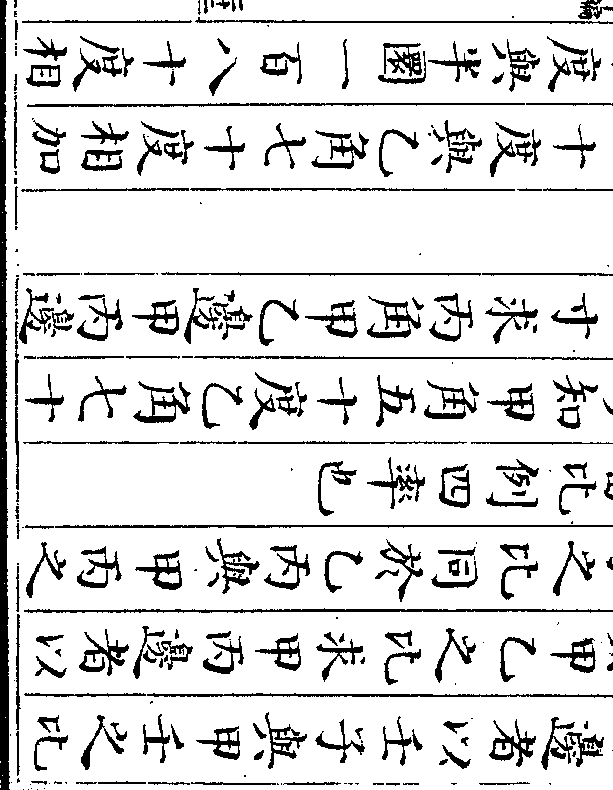 邊者以壬子與甲壬之比
甲乙之比求甲丙邊者以
之比同於乙丙與甲丙之
比例四率也
知甲角五十度乙角七十
寸求丙角甲乙邊甲丙邊
十度與乙角七十度相加
度與半圜一百八十度相